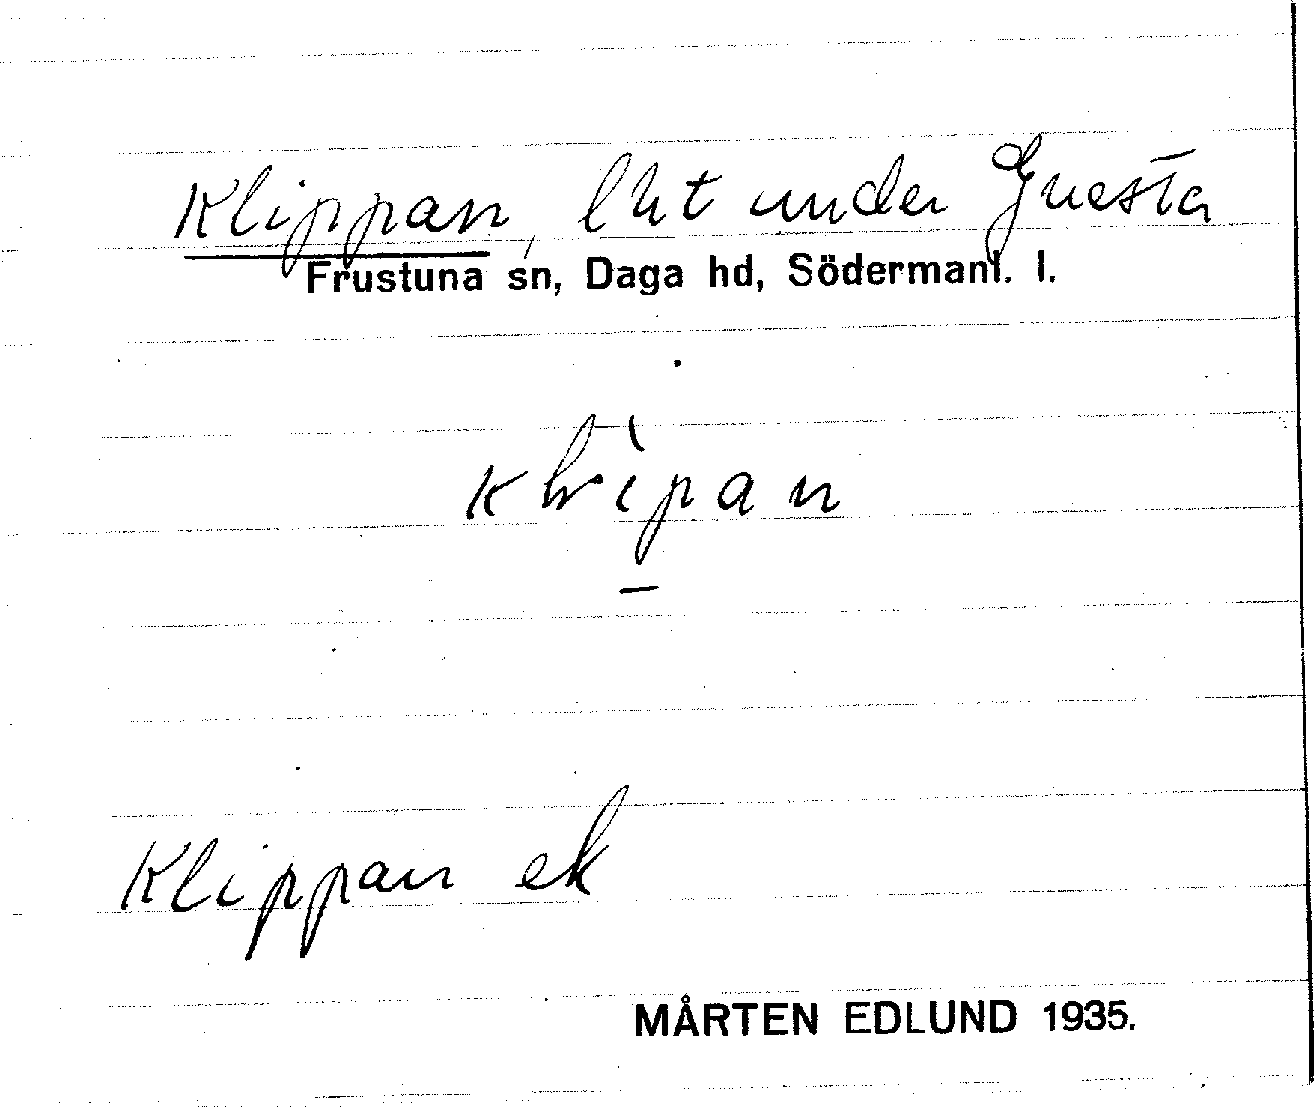 Klippan, lht under Gnesta
Frustuna sn, Daga hd, Södermanl. l.
Klippan ek
MÅRTEN EDLUND 1935.